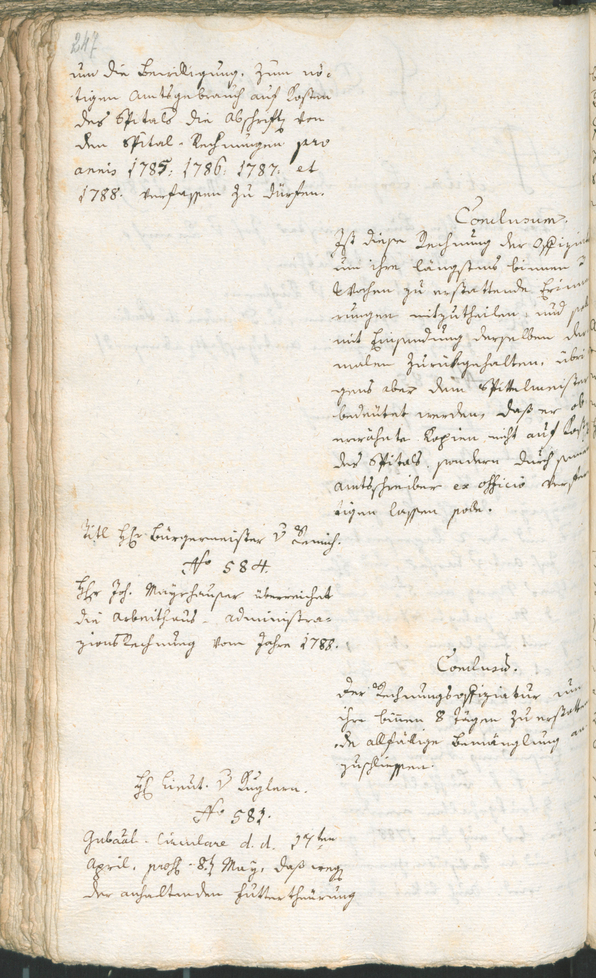 247
um die Bewilligung. Zum nö-
tigen Amtsgebrauch auf Kosten
des Spitals die Abschrift von
den Spital-Rechnungen pro
annis 1785, 1786, 1787. et
1788. verfassen zu dürfen.
Conclusum.
Ist diese Rechnung der Offizi
um ihre längstens binnen
Wochen zu erstattende Erinne
rungen mitzutheilen, und
mit Einsendung derselben der
malen zurückgehalten, übri
gens aber dem Spittelmeister
bedeutet werden, daß er ob
erwähnte Kopien nicht auf Kosten
des Spitals, sondern durch seinen
Amtschreiber ex officio verfer
tigen lassen solle.
Titl Hr Bürgermeister v
No 584.
Hr Joh. Mayrhauser überreichet
die Arbeithaus-Administra-
zions Rechnung vom Jahre 1788.
Conclus.
Der Rechnungsoffiziatur um
ihre binen 8 Tägen zu erstatten
de allfällige Bemänglung an
zuschliessen.
H Lieut. v Kuglern.
No 582.
Gubäal-Circulare d. d. 17ten
April, 8. May, daß weg
der anhaltenden Futtertheürung